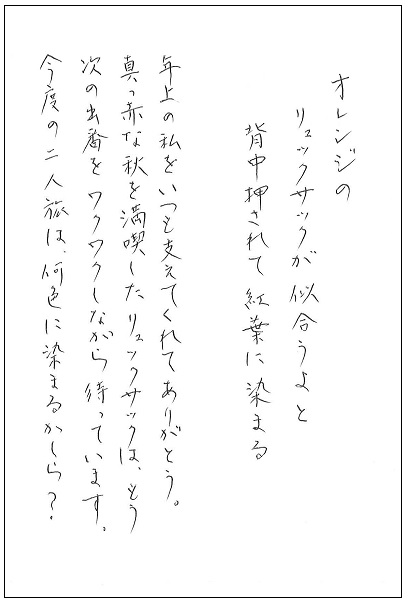 オレンジの
リュックサックが似合うよと
背中押されて紅葉に染まる
年上の私をいつも支えてくれてありがとう。
真っ赤な秋を満喫したリュックサックは、もう
次の出番をワクワクしながら待っています。
今度の二人旅は、何色に染まるかしら？